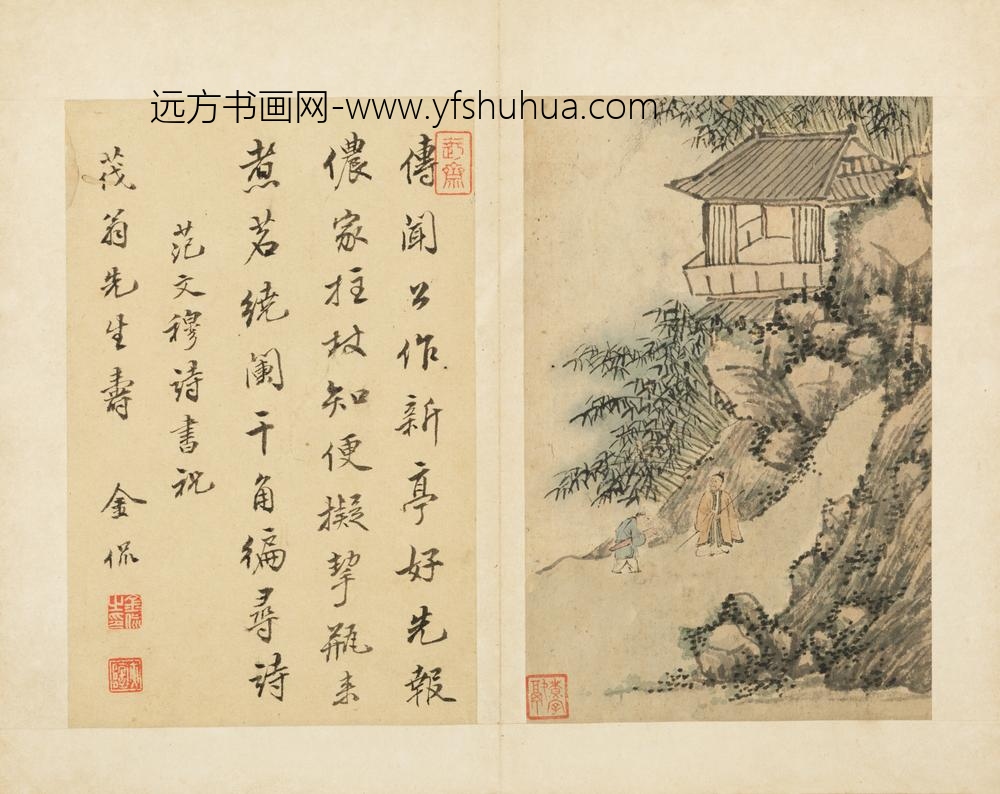 远方书画网-www.yfshuhua.com
傳聞公作新亭好先報
儂家拄杖知便擬挈瓶来
煮茗繞闌干角徧尋詩
范文穆詩書祝
茷翁先生壽 金侃